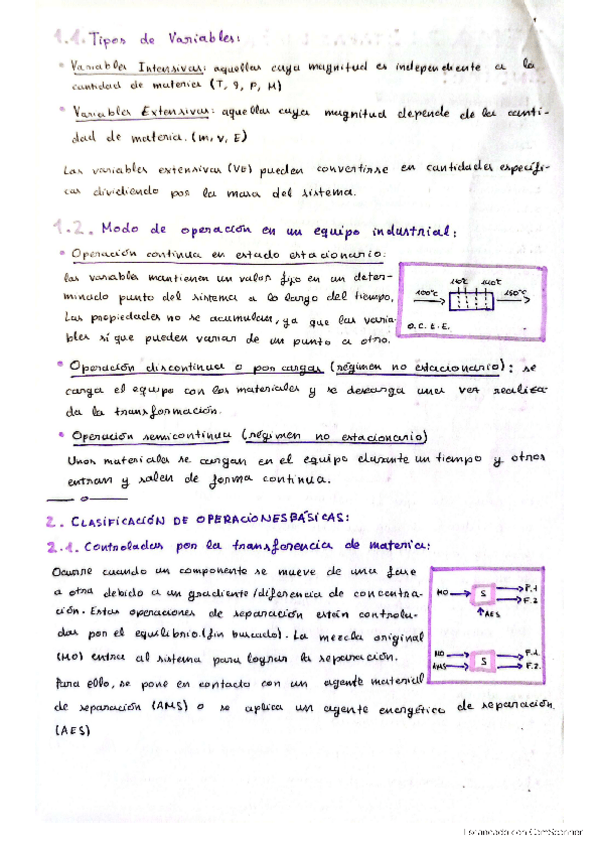 1.1. Tipos de Variables:
• Variables Intensivas: aquellas cuya magnitud es independiente a la
cantidad de materia (T, P, M)
• Variables Extensivas: aquellas cuya magnitud depende de la canti-
dad de materia. (m, v, E)
Las variables extensivas (VE) pueden convertirse en cantidades específi-
cas dividiendo por la masa del sistema.
1.2. Modo de operación en un equipo industrial:
• Operación continua en estado estacionario:
las variables mantienen un valor fijo en un deter-
minado punto del sistema a lo largo del tiempo.
Las propiedades no se acumulan, ya que las varia-
bles sí que pueden variar de un punto a otro.
100°C
150°C
O.C.E.E.
• Operación discontinua o por cargas (régimen no estacionario): se
carga el equipo con los materiales y se descarga una vez realiza
da la transformación.
• Operación semicontinua (régimen no estacionario)
Unos materiales se cargan en el equipo durante un tiempo y otros
entran y salen de forma continua.
2. CLASIFICACIÓN DE OPERACIONES BÁSICAS:
2.1. Controladas por la transferencia de materia:
Ocurre cuando un componente se mueve de una fase
a otra debido a un gradiente/diferencia de concentra-
ción. Estas operaciones de separación están controla-
das por el equilibrio (fin buscado). La mezcla original
(MO) entra al sistema para lograr la separación.
Para ello, se pone en contacto con un agente material
de separación (AMS) o se aplica un agente energético de separación
(AES)
MO
S
F.1
F.2
AES
MO
AMS
S
F.1.
F.2.
Escaneado con CamScanner